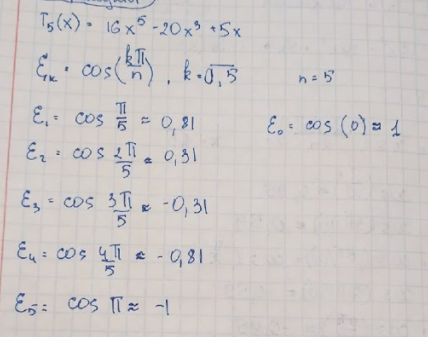 T₅(x) = 16x⁵ - 20x³ + 5x
ξₖ = cos(kπ/n), k = 0,5 n = 5
ξ₁ = cos π/5 ≈ 0,81 ξ₀ = cos (0) ≈ 1
ξ₂ = cos 2π/5 ≈ 0,31
ξ₃ = cos 3π/5 ≈ -0,31
ξ₄ = cos 4π/5 ≈ -0,81
ξ₅ = cos π ≈ -1